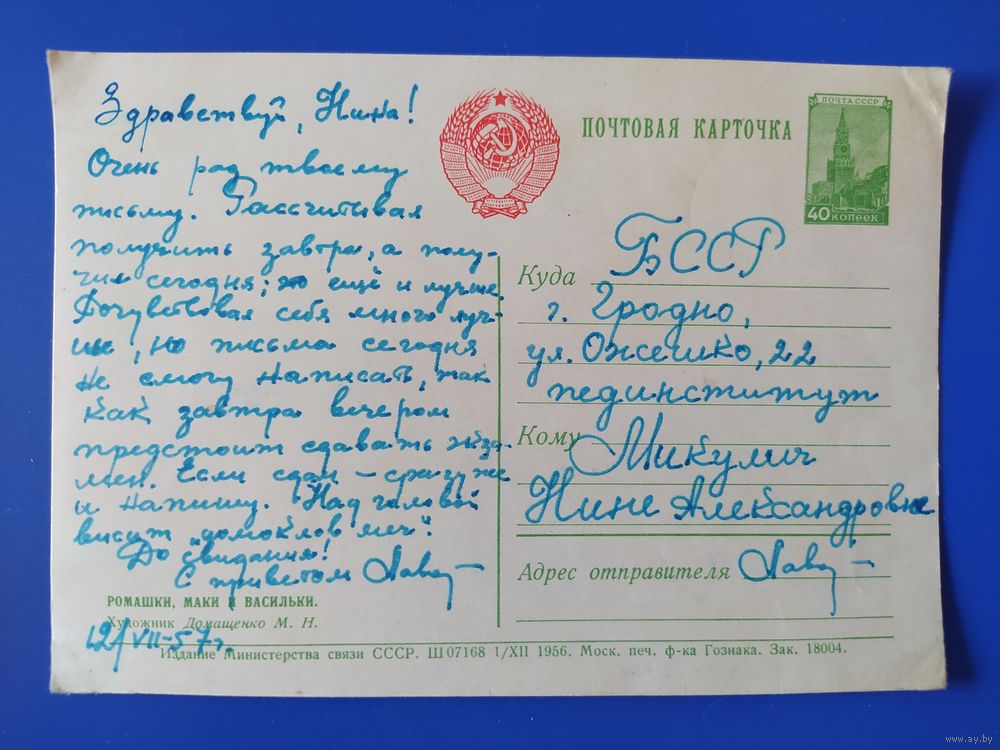 Здравствуй, Нина!
Очень рад твоему
письму. Рассчитывал
получить завтра, а полу-
чил сегодня; то ещё и лучше.
Почувствовал себя много луч-
ше, но письма сегодня
не смогу написать, так
как завтра вечером
предстоит сдавать экза-
мен. Если сдам – сразу же
и напишу. Над головой
висит „домоклов меч“.
До свидания!
С приветом
РОМАШКИ, МАКИ И ВАСИЛЬКИ.
Художник Домащенко М. Н.
12/VII–57г.
ПОЧТОВАЯ КАРТОЧКА
ПОЧТА СССР
40 КОПЕЕК
Куда БССР
г. Гродно,
ул. Ожешко, 22
пединститут
Кому Микулич
Нине Александровне
Адрес отправителя
Издание Министерства связи СССР. Ш 07168 1/XII 1956. Моск. печ. ф-ка Гознака. Зак. 18004.
www.ay.by